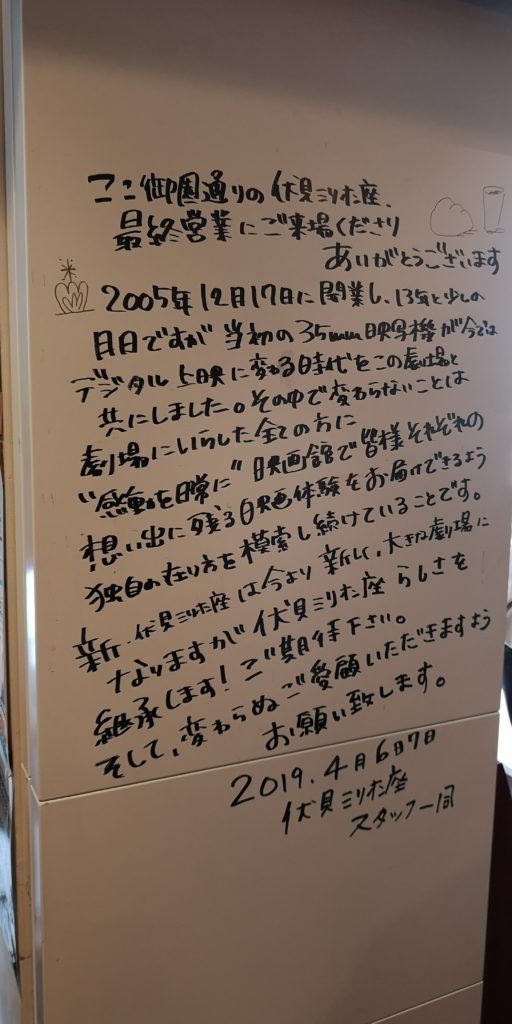 ここ御園通りの伏見ミリオン座、
最終営業にご来場くださり
ありがとうございます
2005年12月17日に開業し、13年と少しの
月日ですが 当初の35mm映写機が今では
デジタル上映に変わる時代をこの劇場と
共にしました。その中で変わらないことは
劇場にいらした全ての方に
"感動を日常に"映画館で皆様それぞれの
想い出に残る映画体験をお届けできるよう
独自の在り方を模索し続けていることです。
新・伏見ミリオン座は今より新しく、大きな劇場に
なりますが伏見ミリオン座らしさを
継承します!ご期待下さい。
そして、変わらぬご愛顧いただきますよう
お願い致します。
2019.4月6日7日
伏見ミリオン座
スタッフ一同